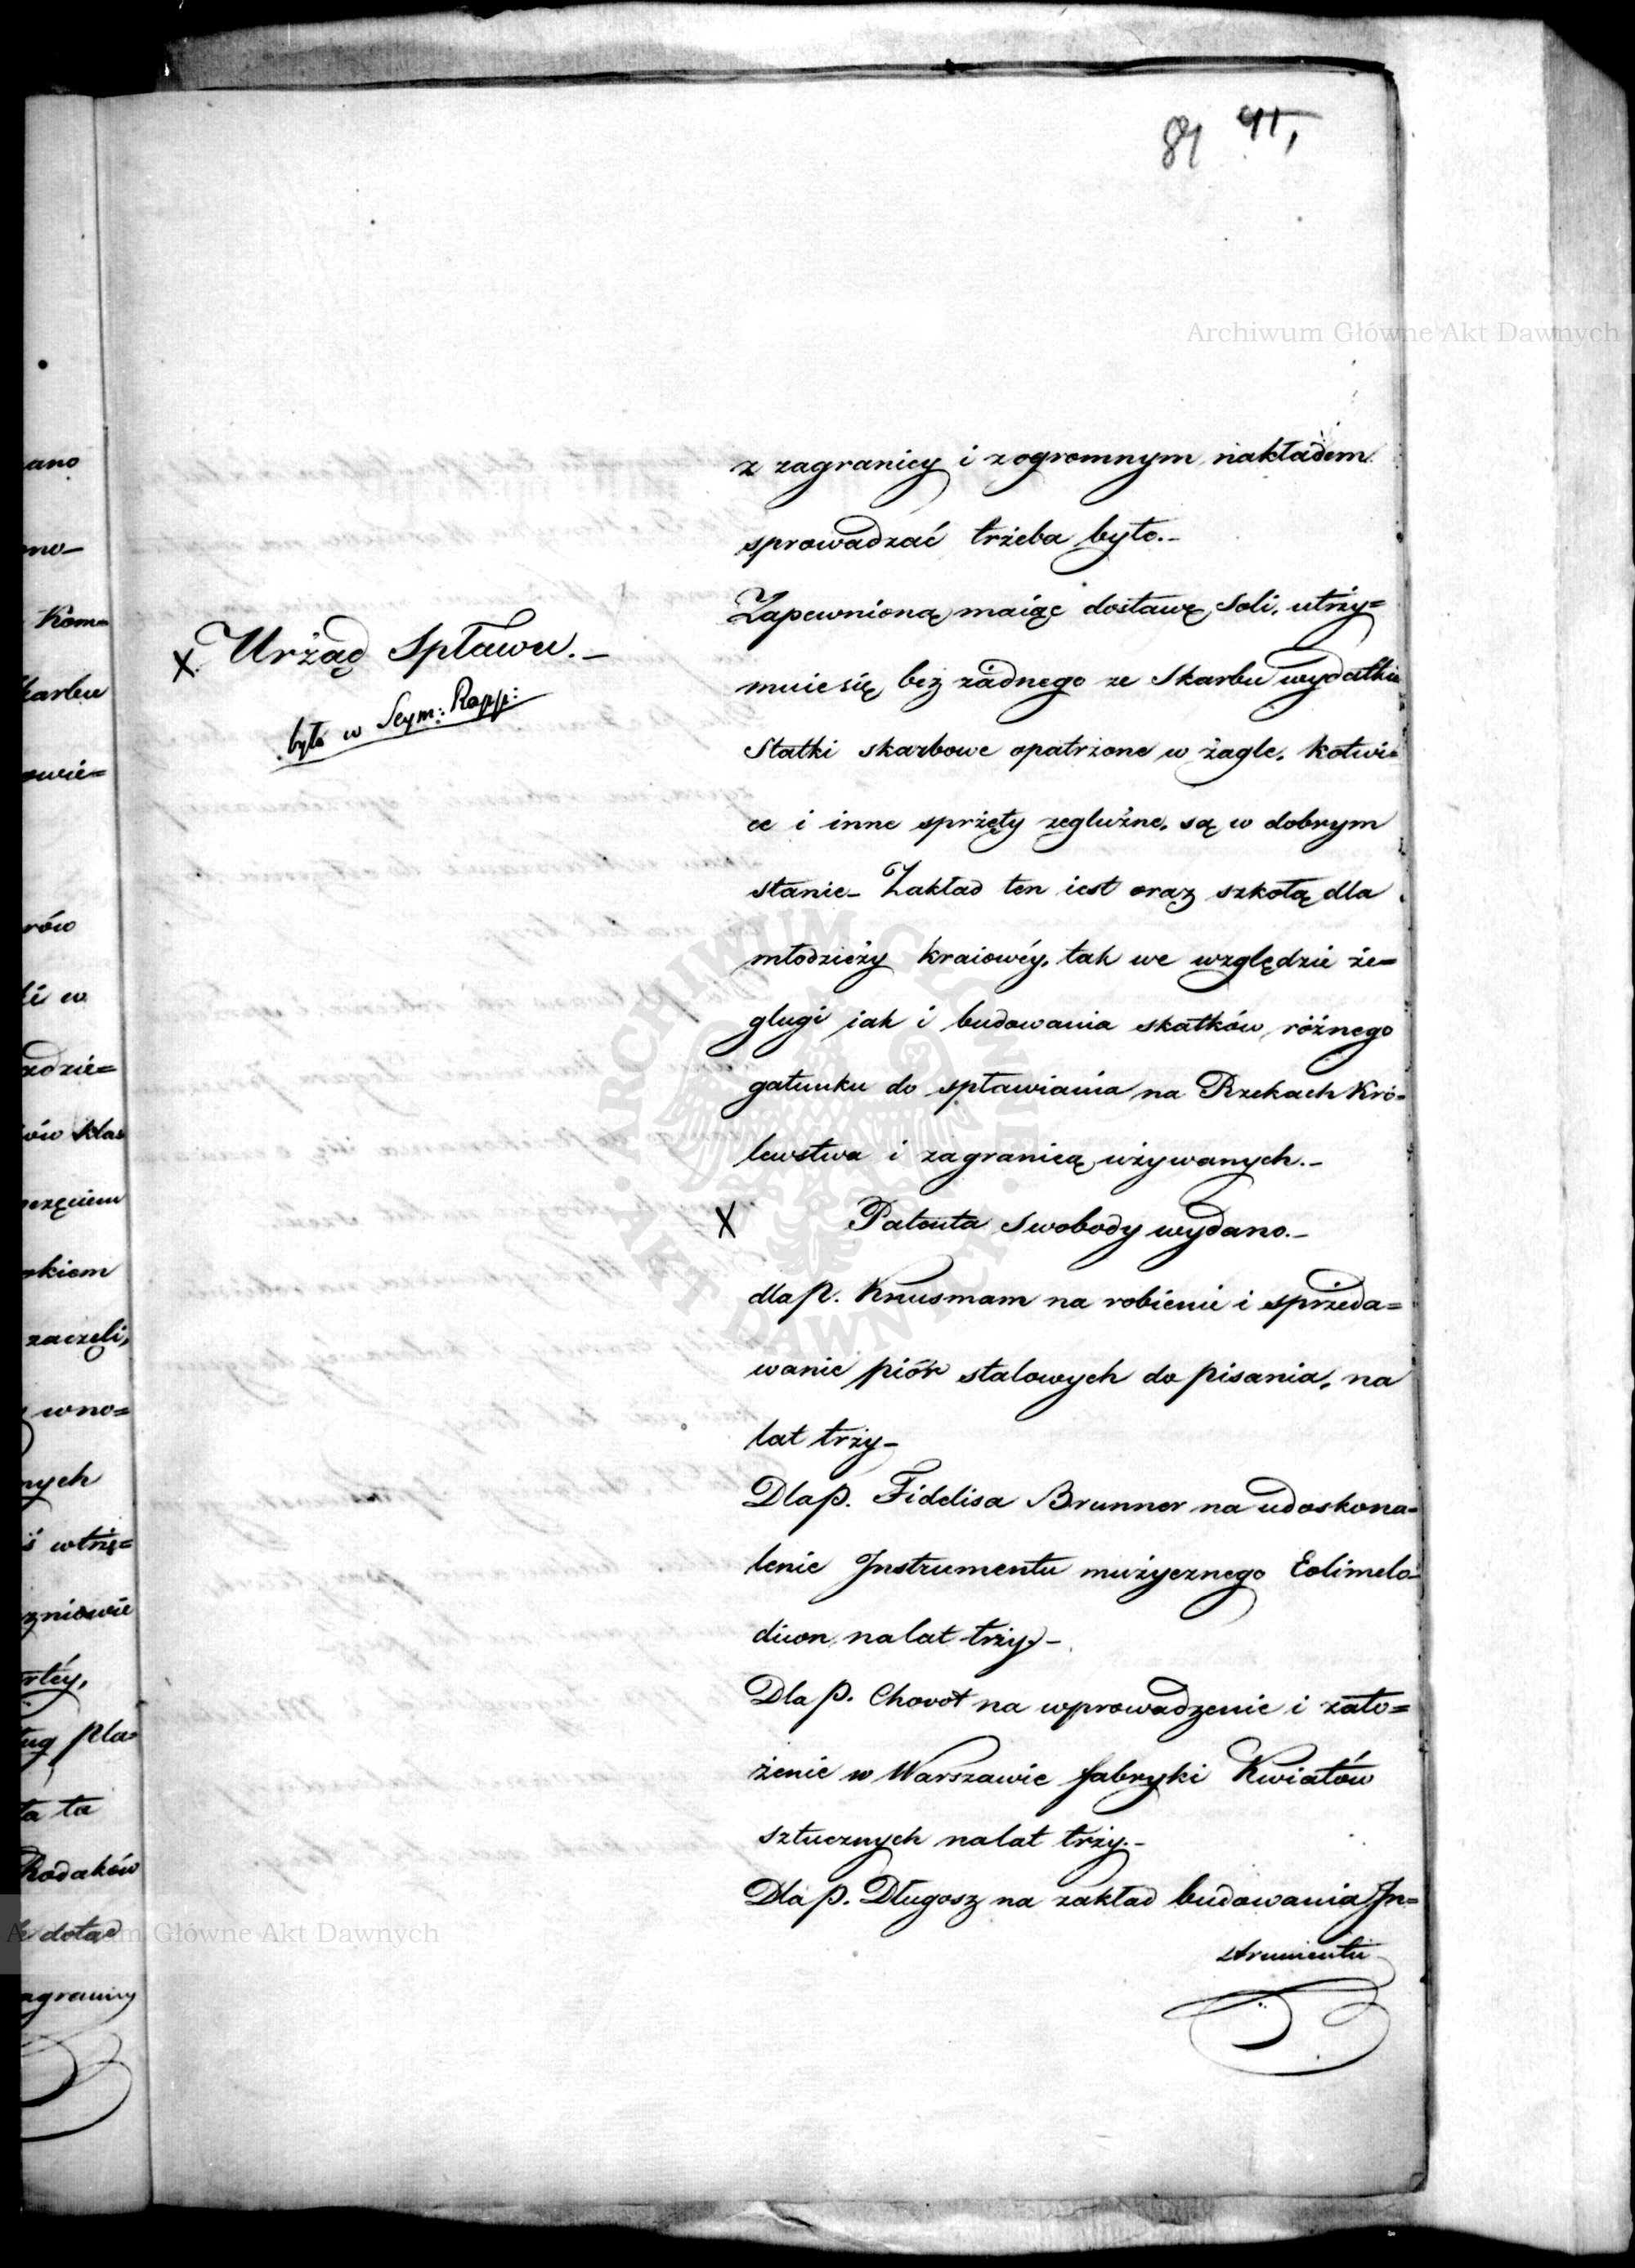 84 41,
Archiwum Główne Akt Dawnych
z zagranicy i z ogromnym nakładem
sprowadzać trzeba było.-
X. Urżąd Spławu.-
było w Seym: Rapp:
Zapewnioną maiąc dostawę Soli, utrzy=
muie się bez żadnego ze Skarbu wydatku
Statki skarbowe opatrzone w żagle, kotwi=
ce i inne sprzęty żeglużne, są w dobrym
stanie_ Zakład ten iest oraz szkołą dla
młodzieży kraiowéy, tak we względzie że=
glugi iak i budowania skatków różnego
gatunku do spławiania na Rzekach Kró=
lewstwa i zagranicą używanych.-
X Patenta Swobody wydano.-
dla P. Knusmam na robienie i sprzeda=
wanie piór stalowych do pisania, na
lat trzy-
Dla P. Fidelisa Brunner na udoskona=
lenie Instrumentu muzycznego Eolimelo=
dicon, na lat trzy.-
Dla P. Chovot na wprowadzenie i zało=
żenie w Warszawie fabryki Kwiatów
sztucznych na lat trzy.-
Dla P. Długosz na zakład budowania In=
strumentu
ano
mo-
Kom=
karbu
owie=
rów
ki w
adzie=
ów klas
częciem
okiem
zaczęli,
wno=
nych
wtrzę=
zniowie
rtéy,
ug pla=
ta ta
Rodaków
dotąd
Archiwum Główne Akt Dawnych
agranicy
ARCHIWUM GŁÓWNE · AKT DAWNYCH ·